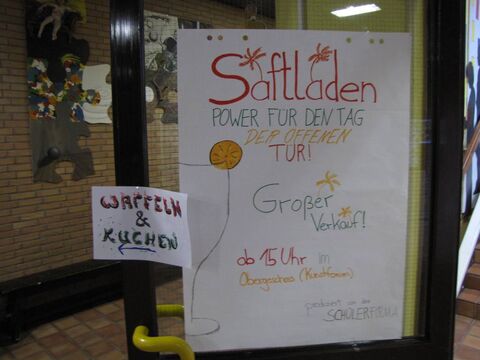 Saftladen
POWER FÜR DEN TAG
DER OFFENEN
TÜR!
Großer
Verkauf!
ab 15 Uhr im
produziert von der
SCHÜLERFIRMA
WAFFELN
&
KUCHEN